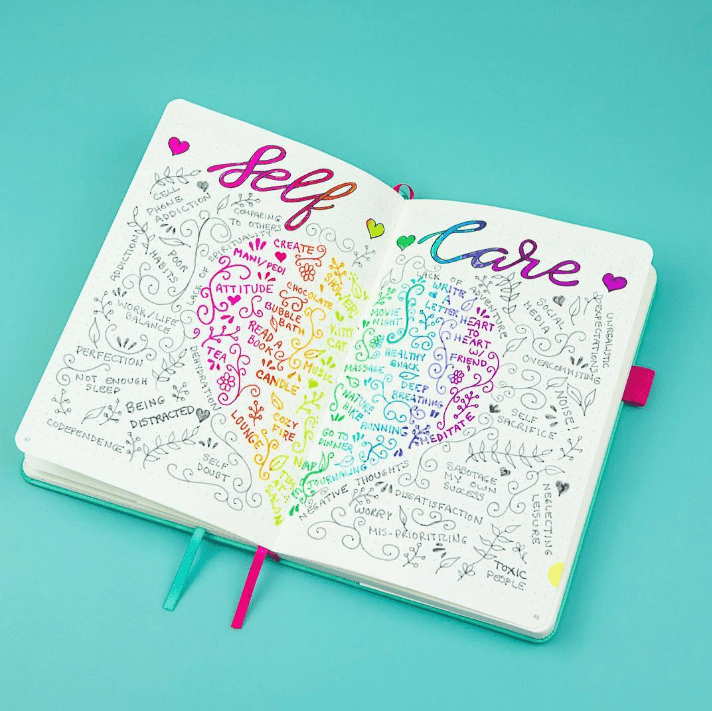 Self
Care
CELL
PHONE
ADDICTION
COMPARING
TO OTHERS
ADDICTIONS
POOR
HABITS
LACK OF SPIRITUALITY
WORK/LIFE
BALANCE
PERFECTION
NOT ENOUGH
SLEEP
BEING
DISTRACTED
CODEPENDENCE
SELF
DOUBT
DEHYDRATION
CREATE
MANI/PEDI
ATTITUDE
CHOCOLATE
BUBBLE
BATH
READ A
BOOK
TEA
KITTY
CAT
MUSIC
CANDLE
COZY
FIRE
LOUNGE
NAP
LACK OF ADVENTURE
WRITE
A
LETTER
MOVIE
NIGHT
HEART
TO
HEART
W/
FRIEND
HEALTHY
SNACK
MASSAGE
DEEP
BREATHING
NATURE
HIKE
RUNNING
MEDITATE
GO TO
DINNER
JOURNALING
NEGATIVE THOUGHTS
SOCIAL
MEDIA
UNREALISTIC
EXPECTATIONS
OVERCOMMITING
NOISE
SELF
SACRIFICE
SABOTAGE
MY OWN
SUCCESS
NEGLECTING
LEISURE
DISSATISFACTION
WORRY
MIS-PRIORITIZING
TOXIC
PEOPLE